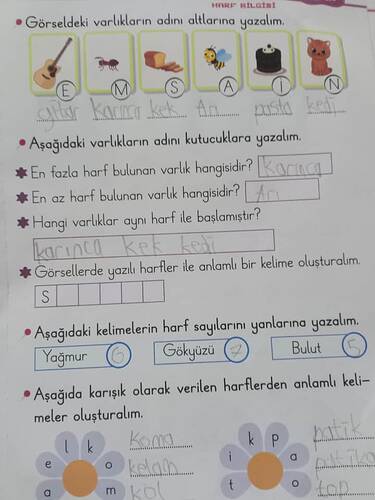 HARF BİLGİSİ
• Görseldeki varlıkların adını altlarına yazalım.
E M S A I N
gitar karınca kek Arı pasta kedi
• Aşağıdaki varlıkların adını kutucuklara yazalım.
En fazla harf bulunan varlık hangisidir? Karınca
En az harf bulunan varlık hangisidir? Arı
Hangi varlıklar aynı harf ile başlamıştır?
karınca kek kedi
Görsellerde yazılı harfler ile anlamlı bir kelime oluşturalım.
S
• Aşağıdaki kelimelerin harf sayılarını yanlarına yazalım.
Yağmur 6 Gökyüzü 7 Bulut 5
• Aşağıda karışık olarak verilen harflerden anlamlı keli-
meler oluşturalım.
l k e o a m
koma
kelam
kol
k p i a t o
patik
top